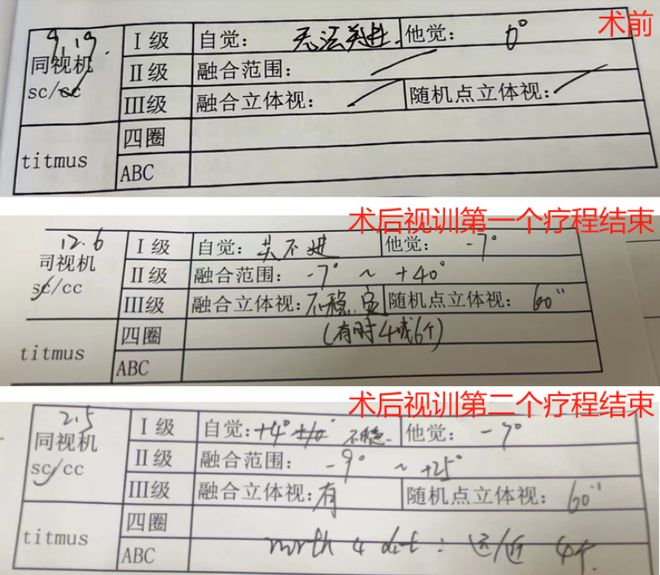 术前
9.19.
同视机 sc/cc
I 级 自觉: 无法关进. 他觉: 0°
II级 融合范围:
III级 融合立体视: 随机点立体视:
titmus 四圈
ABC
术后视训第一个疗程结束
12.6
同视机 sc/cc
I 级 自觉: 关不进 他觉: -7°
II级 融合范围: -7° ~ +40°
III级 融合立体视: 不稳定 随机点立体视: 60"
titmus 四圈 (有时4或6个)
ABC
术后视训第二个疗程结束
2.5
同视机 sc/cc
I 级 自觉: +4° 不稳. 他觉: -7°
II级 融合范围: -9° ~ +25°
III级 融合立体视: 有 随机点立体视: 60"
titmus 四圈
ABC worth 4 dot: 远/近 4个.